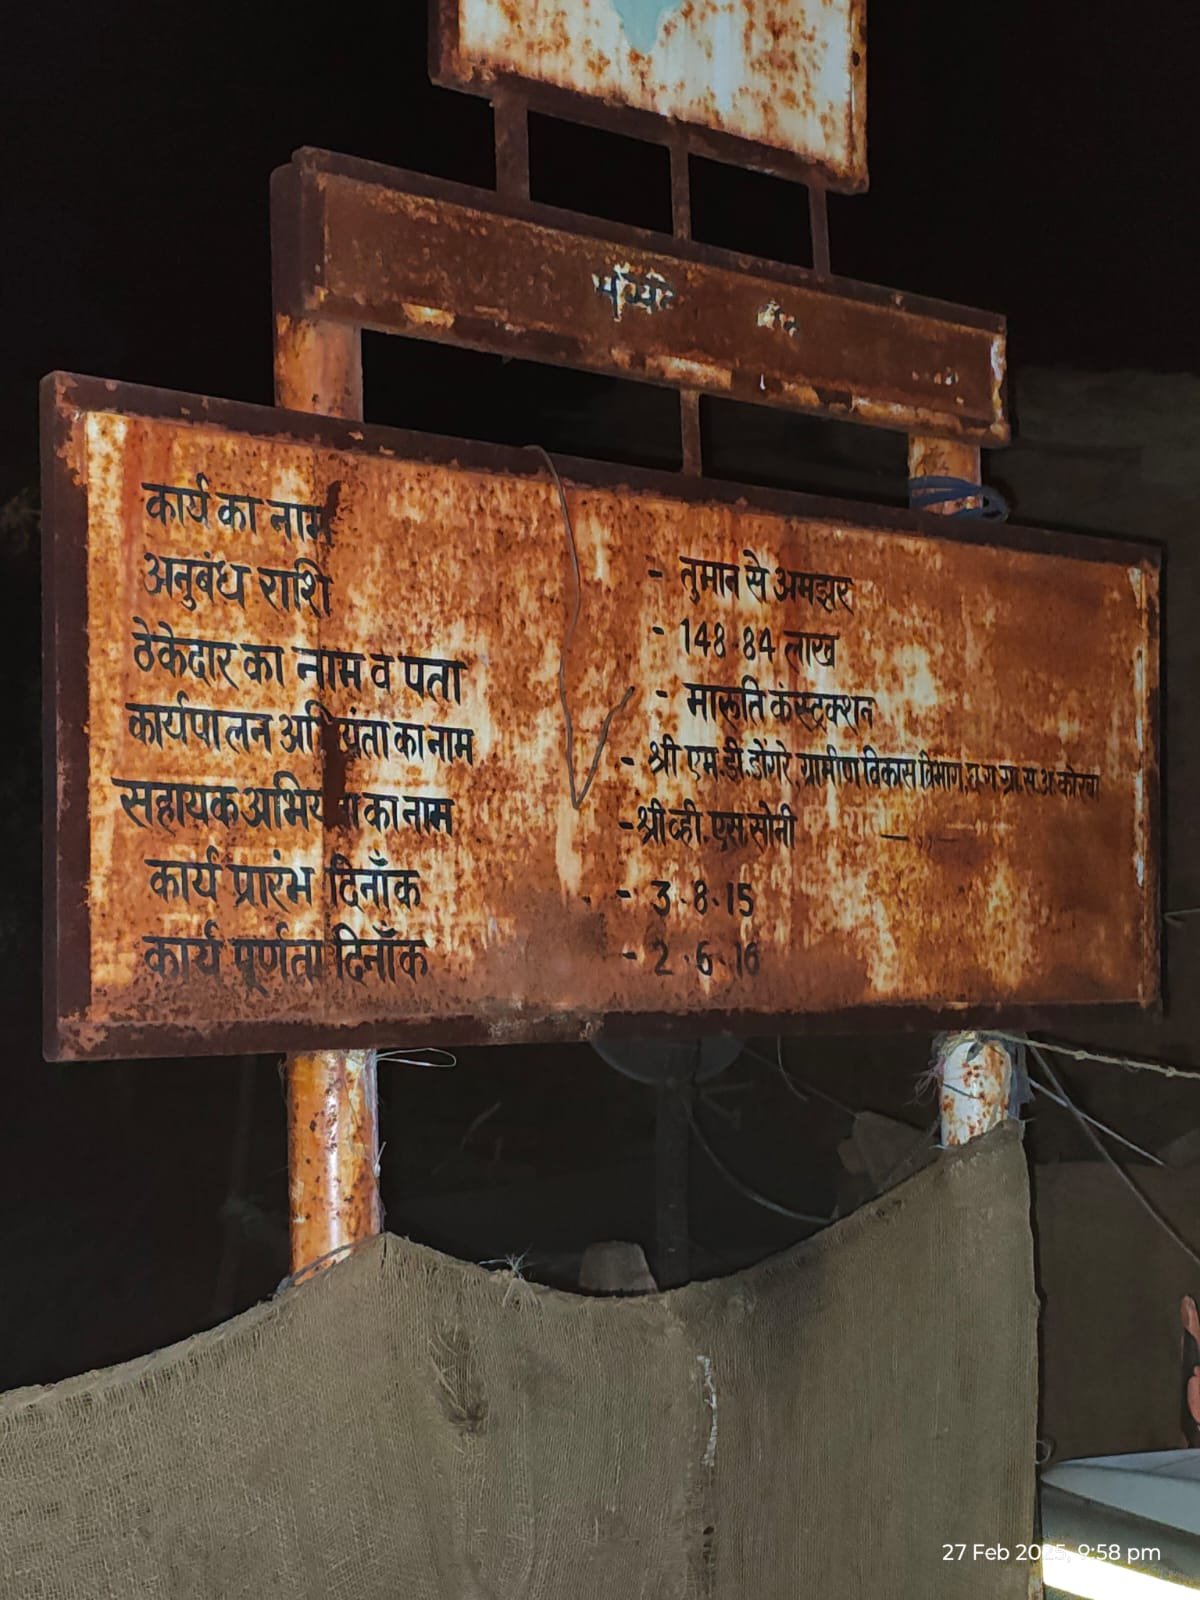 कार्य का नाम - तुमान से अमझर
अनुबंध राशि - 148.84 लाख
ठेकेदार का नाम व पता - मारूति कंस्ट्रक्शन
कार्यपालन अभियंता का नाम - श्री एम.डी.डोंगरे, ग्रामीण विकास विभाग, छ.ग.ग्रा.स.अ.कोरबा
सहायक अभियंता का नाम - श्री व्ही.एस.सोनी — ,, —
कार्य प्रारंभ दिनाँक - 3.8.15
कार्य पूर्णता दिनाँक - 2.6.16
27 Feb 2025, 9:58 pm